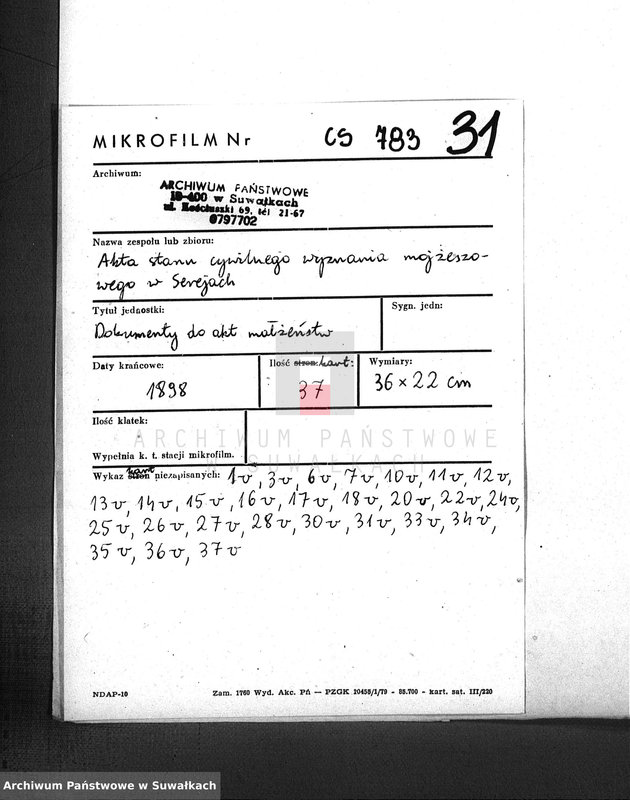 MIKROFILM Nr CS 783 31
Archiwum:
ARCHIWUM PAŃSTWOWE
16-400 w Suwałkach
ul. Kościuszki 69, tel 21-67
0797702
Nazwa zespołu lub zbioru:
Akta stanu cywilnego wyznania mojżeszo-
wego w Serejach
Tytuł jednostki: Sygn. jedn:
Dokumenty do akt małżeństw
Daty krańcowe: Ilość stron: kart: Wymiary:
1898 37 36 × 22 cm
Ilość klatek:
ARCHIWUM PAŃSTWOWE
W SUWAŁKACH
Wypełnia k. t. stacji mikrofilm.
Wykaz stron kart niezapisanych: 1v, 3v, 6v, 7v, 10v, 11v, 12v,
13v, 14v, 15v, 16v, 17v, 18v, 20v, 22v, 24v,
25v, 26v, 27v, 28v, 30v, 31v, 33v, 34v,
35v, 36v, 37v
NDAP-10 Zam. 1760 Wyd. Akc. Pń — PZGK 20455/1/79 - 85.700 - kart. sat. III/220
Archiwum Państwowe w Suwałkach